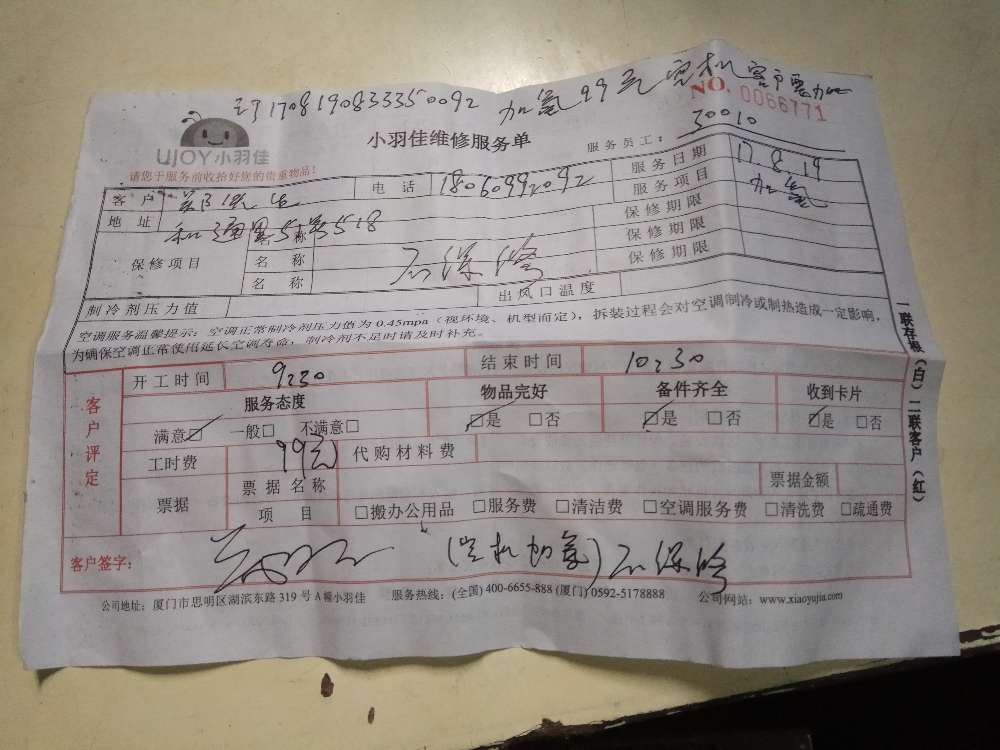 1708190833350092 加氟99元 客户要加
NO. 0066771
UJOY小羽佳
小羽佳维修服务单
服务员工: 30010
请您于服务前收拾好您的贵重物品!
客户
电话 18060992092
服务日期 17.8.19
地址
服务项目 加氟
保修项目
名称
保修期限
名称 不保修
保修期限
名称
保修期限
制冷剂压力值
出风口温度
空调服务温馨提示: 空调正常制冷剂压力值为0.45mpa(视环境、机型而定),拆装过程会对空调制冷或制热造成一定影响,
为确保空调正常使用延长空调寿命,制冷剂不足时请及时补充。
客户评定
开工时间 9:30 结束时间 10:30
服务态度 物品完好 备件齐全 收到卡片
满意☑ 一般□ 不满意□ ☑是 □否 ☑是 □否 ☑是 □否
工时费 99元 代购材料费
票据 票据名称 票据金额
项目 □搬办公用品 □服务费 □清洁费 □空调服务费 □清洗费 □疏通费
客户签字: 不保修
公司地址: 厦门市思明区湖滨东路319号A幢小羽佳 服务热线: (全国) 400-6655-888 (厦门) 0592-5178888 公司网站: www.xiaoyujia.com
一联存根(白) 二联客户(红)